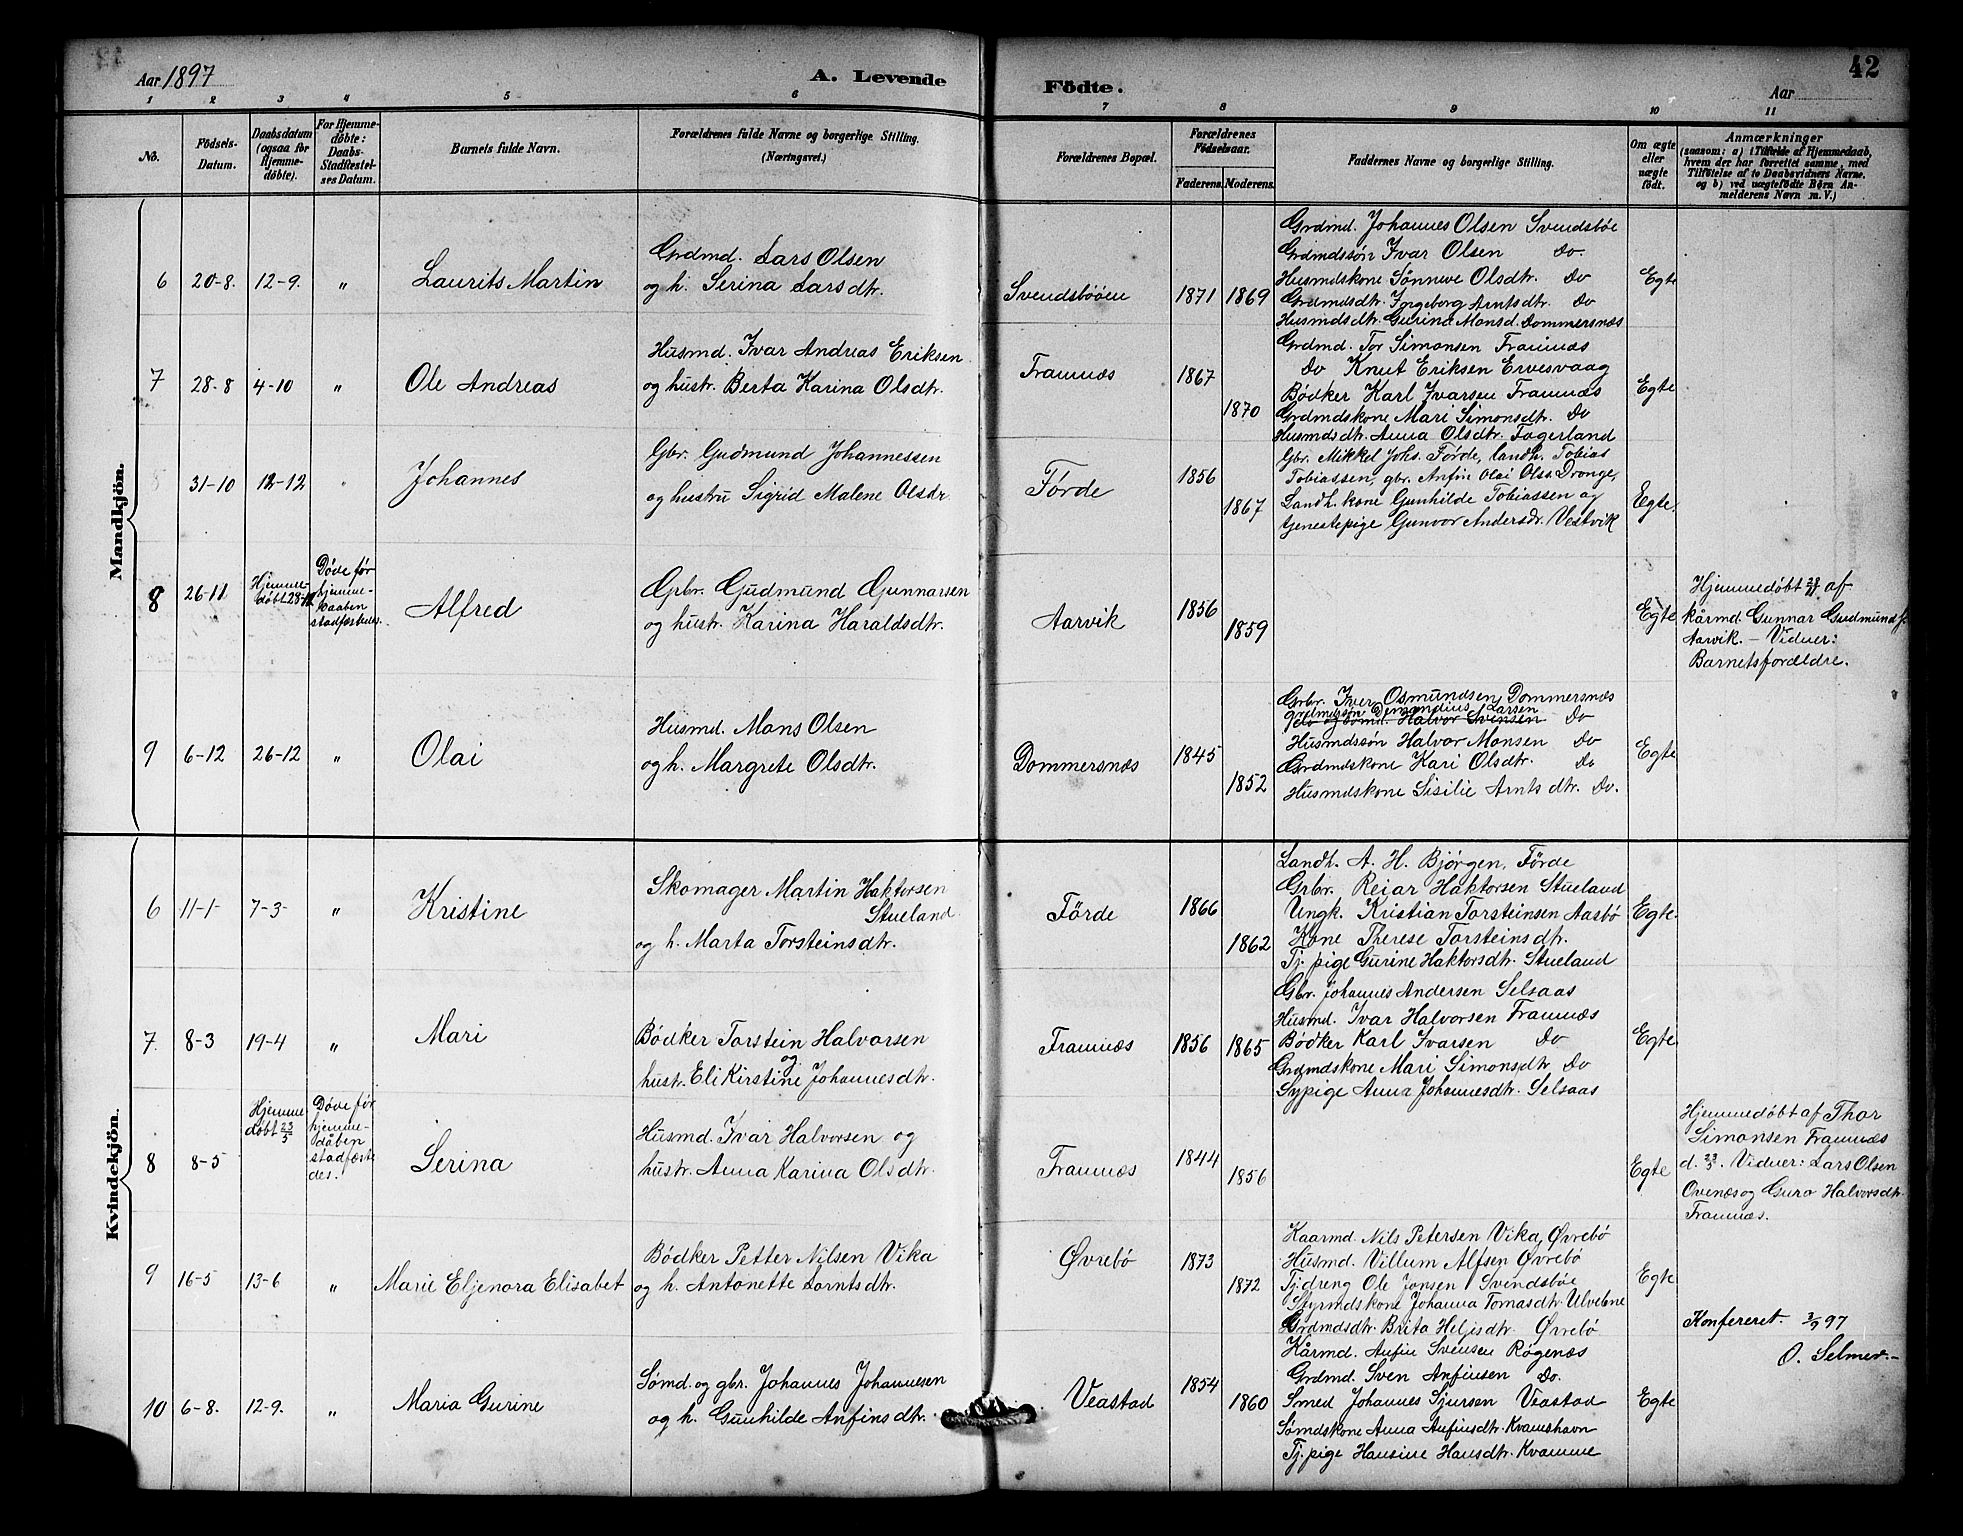 Aar 1897
A. Levende
Födte.
42
Aar
1 2 3 4 5 6 7 8 9 10 11
No.
Födsels-
Datum.
Daabsdatum
(ogsaa for
Hjemme-
döbte).
For Hjemme-
döbte:
Daabs-
Stadfestel-
ses Datum.
Barnets fulde Navn.
Forældrenes fulde Navne og borgerlige Stilling.
(Næringsvei.)
Forældrenes Bopæl.
Forældrenes
Födselsaar.
Faderens. Moderens.
Faddernes Navne og borgerlige Stilling.
Om ægte
eller
uægte
födt.
Anmærkninger
(saasom: a) i Tilfælde af Hjemmedaab,
hvem der har forrettet samme, med
Tilföielse af to Daabsvidners Navne,
og b) ved uægtefödte Börn An-
melderens Navn m. V.)
Mandkjön.
6 20-8. 12-9. "
Laurits Martin
Grdmd. Lars Olsen
og h. Serina Larsdtr.
Svendsböen
1871 1869
Grdmd. Johannes Olsen Svendsböe
Grdmdssön Ivar Olsen Do.
Husmdskone Sönneve Olsdtr. Do
Grdmdsdtr. Ingeborg Arntsdtr. Do
Husmdsdtr. Gurina Monsd. Dommersnæs
Egte
7 28-8 4-10 "
Ole Andreas
Husmd. Ivar Andreas Eriksen
og hustr. Berta Karina Olsdtr.
Framnæs
1867
1870
Grdmd. Tor Simonsen Framnæs
Do Knut Eriksen Ervesvaag
Bödker Karl Ivarsen Framnæs
Grdmdskone Mari Simonsdtr. Do
Husmdsdtr. Anna Olsdtr. Fagerland
Egte
31-10 12-12 "
Johannes
Gbr. Gudmund Johannessen
og hustru Sigrid Malene Olsdr
Förde
1856
1867
Gbr. Mikkel Johs. Förde, landh. Tobias
Tobiassen, gbr. Anfin Olai Olss. Dronge,
Landh. kone Gunhilde Tobiassen og
tjenestepige Gunvor Andersdr. Vestvik
Egte.
8 26-11
Hjemme-
døbt 28-11
Døde før
hjemme-
daaben
stadfæstedes.
Alfred
Gpbr. Gudmund Gunnarsen
og hustr. Karina Haraldsdtr.
Aarvik
1856
1859
Egte
Hjemmedøbt 28/11 af
kårmd. Gunnar Gudmunds.
Aarvik. - Vidner:
Barnetsforældre.
9 6-12 26-12 "
Olai
Husmd. Mons Olsen
og h. Margrete Olsdtr.
Dommersnæs
1845
1852
Grbr. Iver Osmundsen Dommersnæs
Grdmdssön Larsen
Halvor Svensen Do
Husmdssön Halvor Monsen Do
Grdmdskone Kari Olsdtr. Do
Husmdskone Sisilie Arnts dtr. Do.
Egte
Kvindekjön.
6 11-1 7-3- "
Kristine
Skomager Martin Haktorsen
Stueland
og h. Marta Torsteinsdtr.
Förde
1866
1862
Landh. A. H. Bjørgen, Förde
Grbr. Reiar Haktorsen Stueland
Ungk. Kristian Torsteinsen Aasbö
Kone Therese Torsteinsdtr.
Tj. pige Gurine Haktorsdtr. Stueland
Egte.
7. 8-3 19-4 "
Mari
Bödker Torstein Halvorsen
og
hustr. Eli Kirstine Johannesdtr.
Framnæs
1856 1865
Gbr. Johannes Andersen Selsaas
Husmd. Ivar Halvorsen Framnæs
Bödker Karl Ivarsen Do
Grdmdskone Mari Simonsdtr Do
Sypige Anna Johannesdtr. Selsaas
Egte.
8 8-5
Hjemme
døbt 23/5
Døde før
hjemme-
dåben
stadfæste
des.
Serina
Husmd. Ivar Halvorsen og
hustr. Anna Karina Olsdtr.
Framnæs
1844
1856
Egte
Hjemmedøbt af Thor
Simonsen Framnæs
d. 23/5. Vidner: Lars Olsen
Ovenæs og Guro Halvorsdtr.
Framnæs.
9 16-5 13-6 "
Marie Eljenora Elisabet
Bödker Petter Nilsen Vika
og h. Antonette Larntsdtr.
Øvrebö
1873
1872
Kaarmd. Nils Petersen Vika, Øvrebö
Husmd. Villum Alfsen Øvrebö
Tjdreng Ole Jonsen Svendsböe
Styrmdskone Johanna Tomasdtr. Ulveöne
Grdmdsdtr. Brita Heljesdtr. Øvrebö
Egte
Konfereret. 3/9 97
O. Selmer.-
10 6-8. 12-9. "
Maria Gurine
Sømd. og gbr. Johannes Johannesen
og h. Gunhilde Anfinsdtr.
Veastad
1854
1860
Kårmd. Anfin Svensen Røgenæs
Grdmd. Sven Anfinsen Do.
Smed Johannes Sjursen Veastad
Sømdskone Anna Anfinsdtr. Kvamshavn
Tj. pige Hansine Hansdtr. Kvamme
Egte